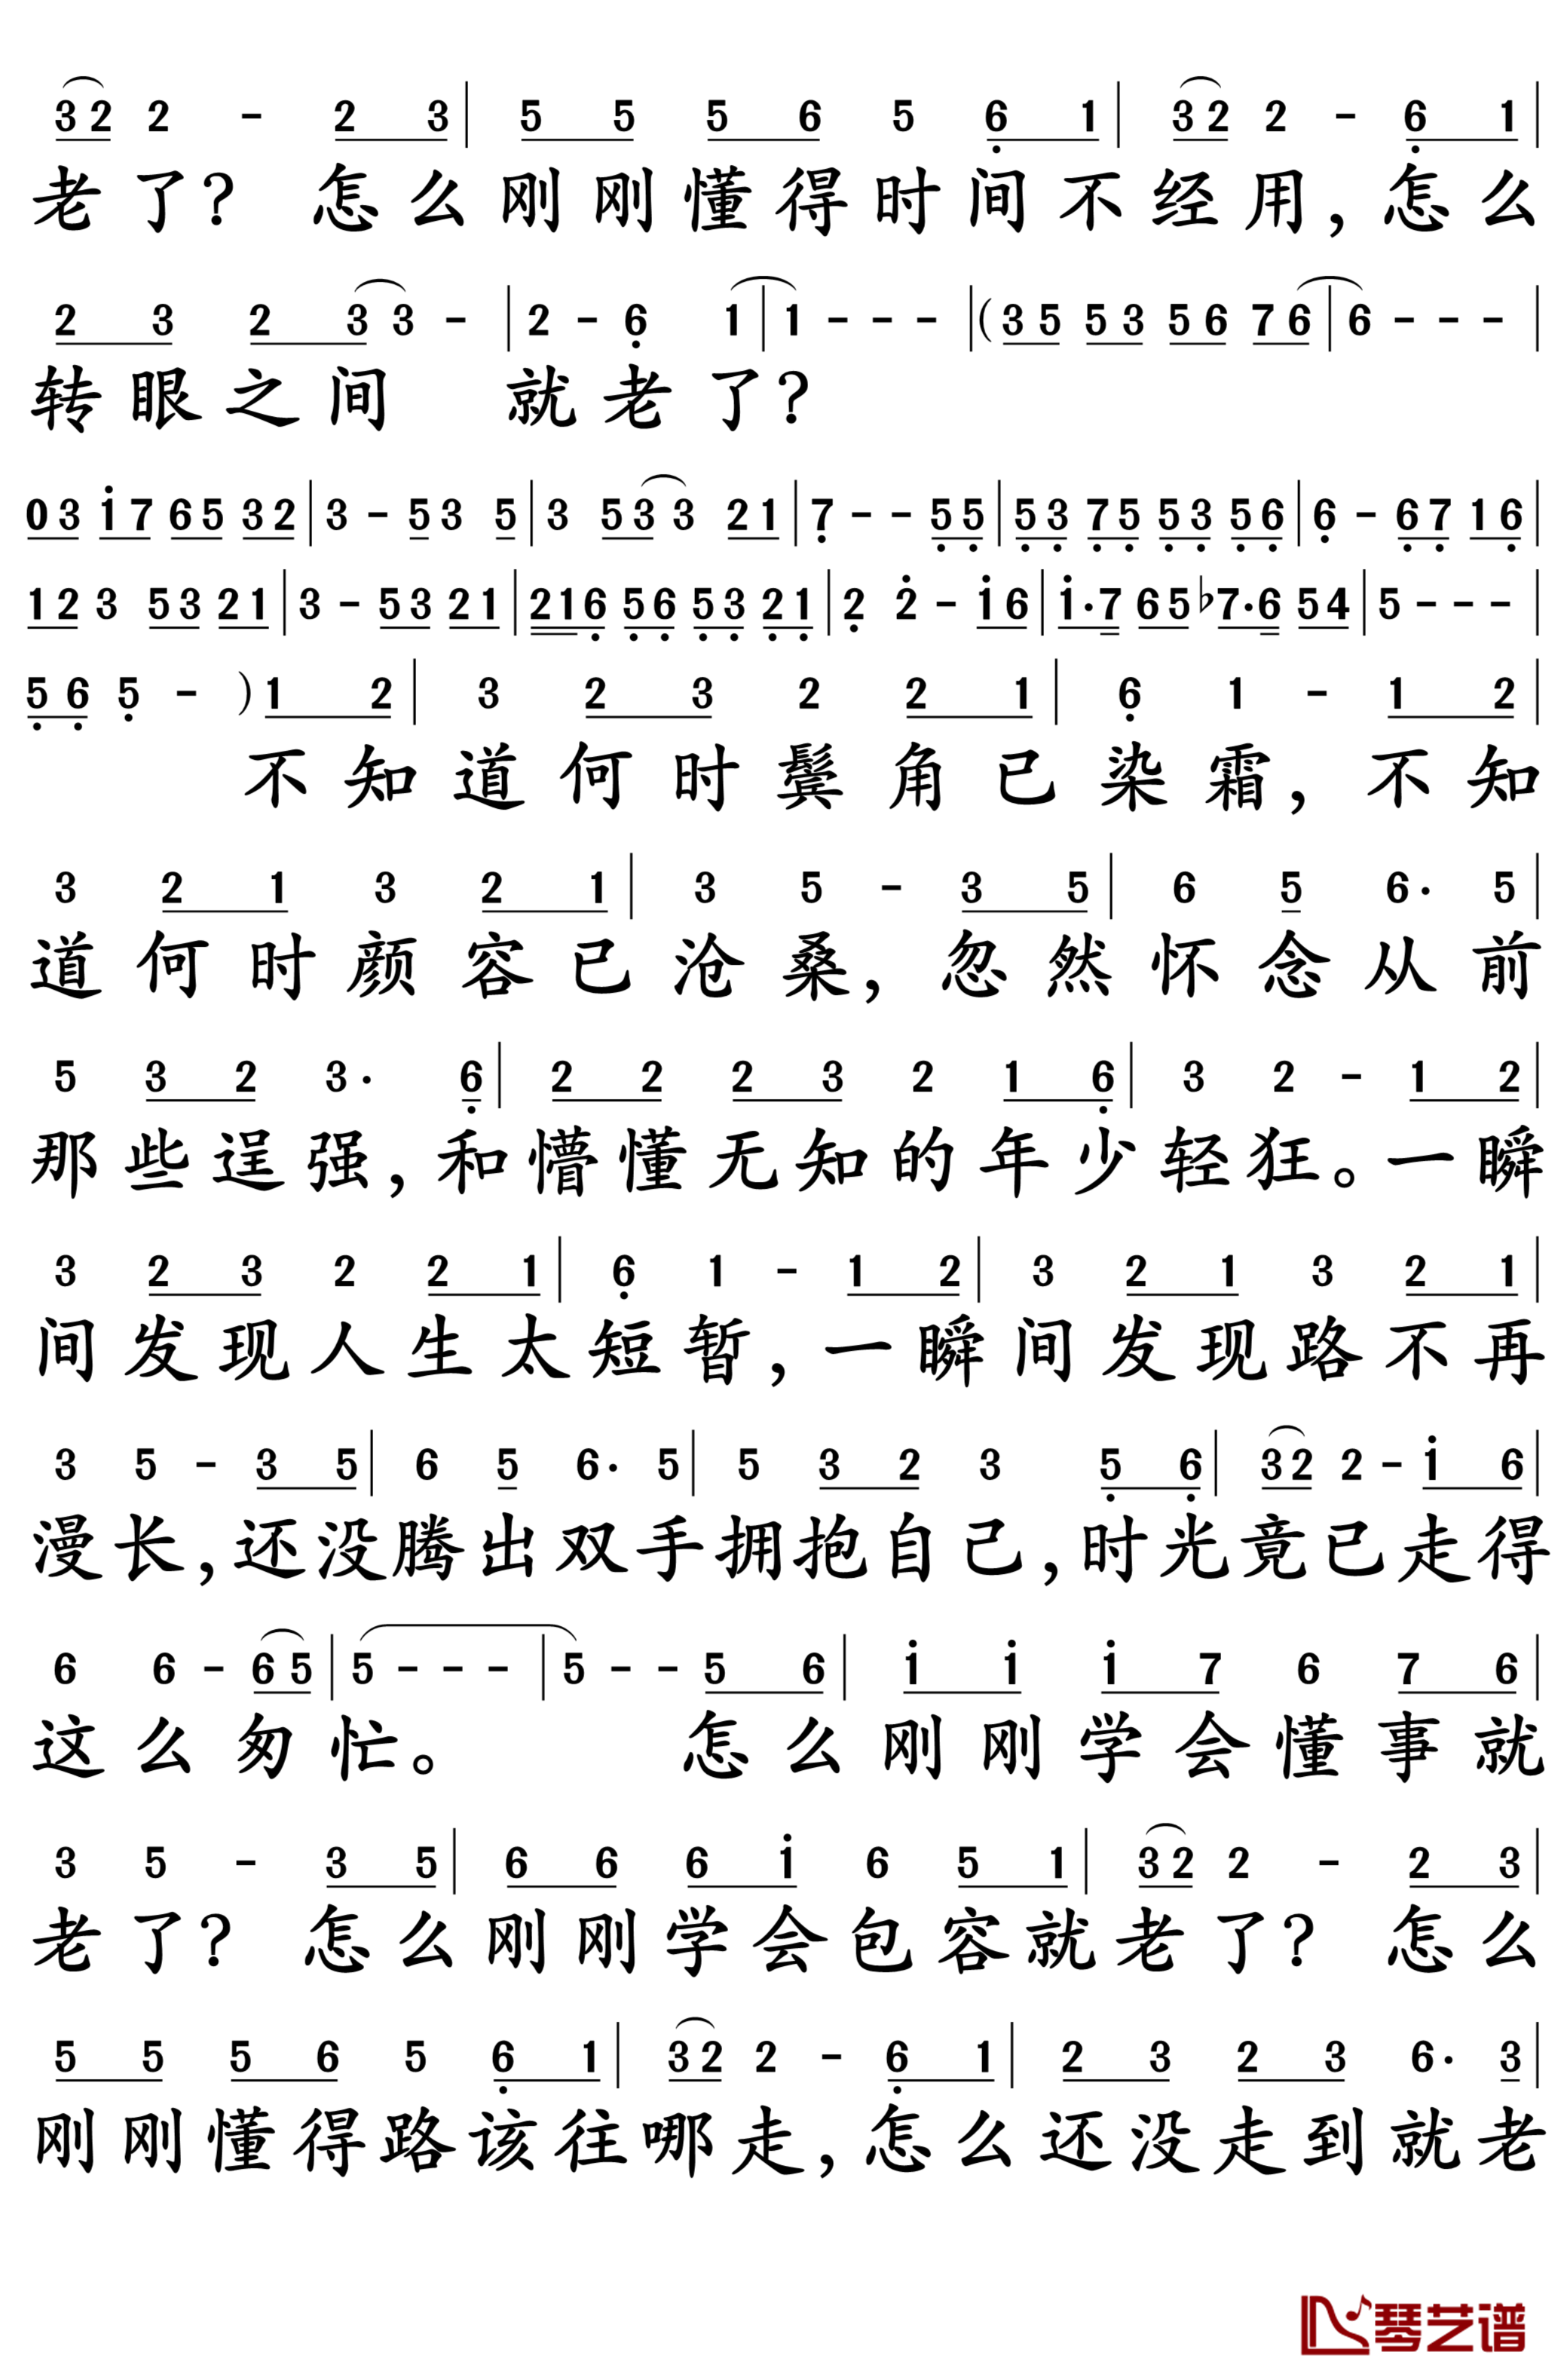 3 2 2 - 2 3 | 5 5 5 6 5 6̣ 1 | 3 2 2 - 6̣ 1 |
老了？怎么刚刚懂得时间不经用，怎么
2 3 2 3 3 - | 2 - 6̣ 1 | 1 - - - | ( 3 5 5 3 5 6 7 6 | 6 - - - |
转眼之间 就老了？
0 3 i 7 6 5 3 2 | 3 - 5 3 5 | 3 5 3 3 2 1 | 7̣ - - 5̣ 5̣ | 5̣ 3̣ 7̣ 5̣ 5̣ 3̣ 5̣ 6̣ | 6̣ - 6̣ 7̣ 1 6̣ |
1 2 3 5 3 2 1 | 3 - 5 3 2 1 | 2 1 6̣ 5̣ 6̣ 5̣ 3̣ 2̣ 1̣ | 2̣ 2̇ - i 6 | i · 7 6 5 ♭7 · 6 5 4 | 5 - - - |
5̣ 6̣ 5̣ - ) 1 2 | 3 2 3 2 2 1 | 6̣ 1 - 1 2 |
不知道何时鬓角已染霜，不知
3 2 1 3 2 1 | 3 5 - 3 5 | 6 5 6 · 5 |
道何时颜容已沧桑，忽然怀念从前
5 3 2 3 · 6̣ | 2 2 2 3 2 1 6̣ | 3 2 - 1 2 |
那些逞强，和懵懂无知的年少轻狂。一瞬
3 2 3 2 2 1 | 6̣ 1 - 1 2 | 3 2 1 3 2 1 |
间发现人生太短暂，一瞬间发现路不再
3 5 - 3 5 | 6 5 6 · 5 | 5 3 2 3 5̣ 6̣ | 3 2 2 - i 6 |
漫长，还没腾出双手拥抱自己，时光竟已走得
6 6 - 6 5 | 5 - - - | 5 - - 5 6 | i i i 7 6 7 6 |
这么匆忙。 怎么刚刚学会懂事就
3 5 - 3 5 | 6 6 6 i 6 5 1 | 3 2 2 - 2 3 |
老了？怎么刚刚学会包容就老了？怎么
5 5 5 6 5 6̣ 1 | 3 2 2 - 6̣ 1 | 2 3 2 3 6 · 3 |
刚刚懂得路该往哪走，怎么还没走到就老
琴艺谱